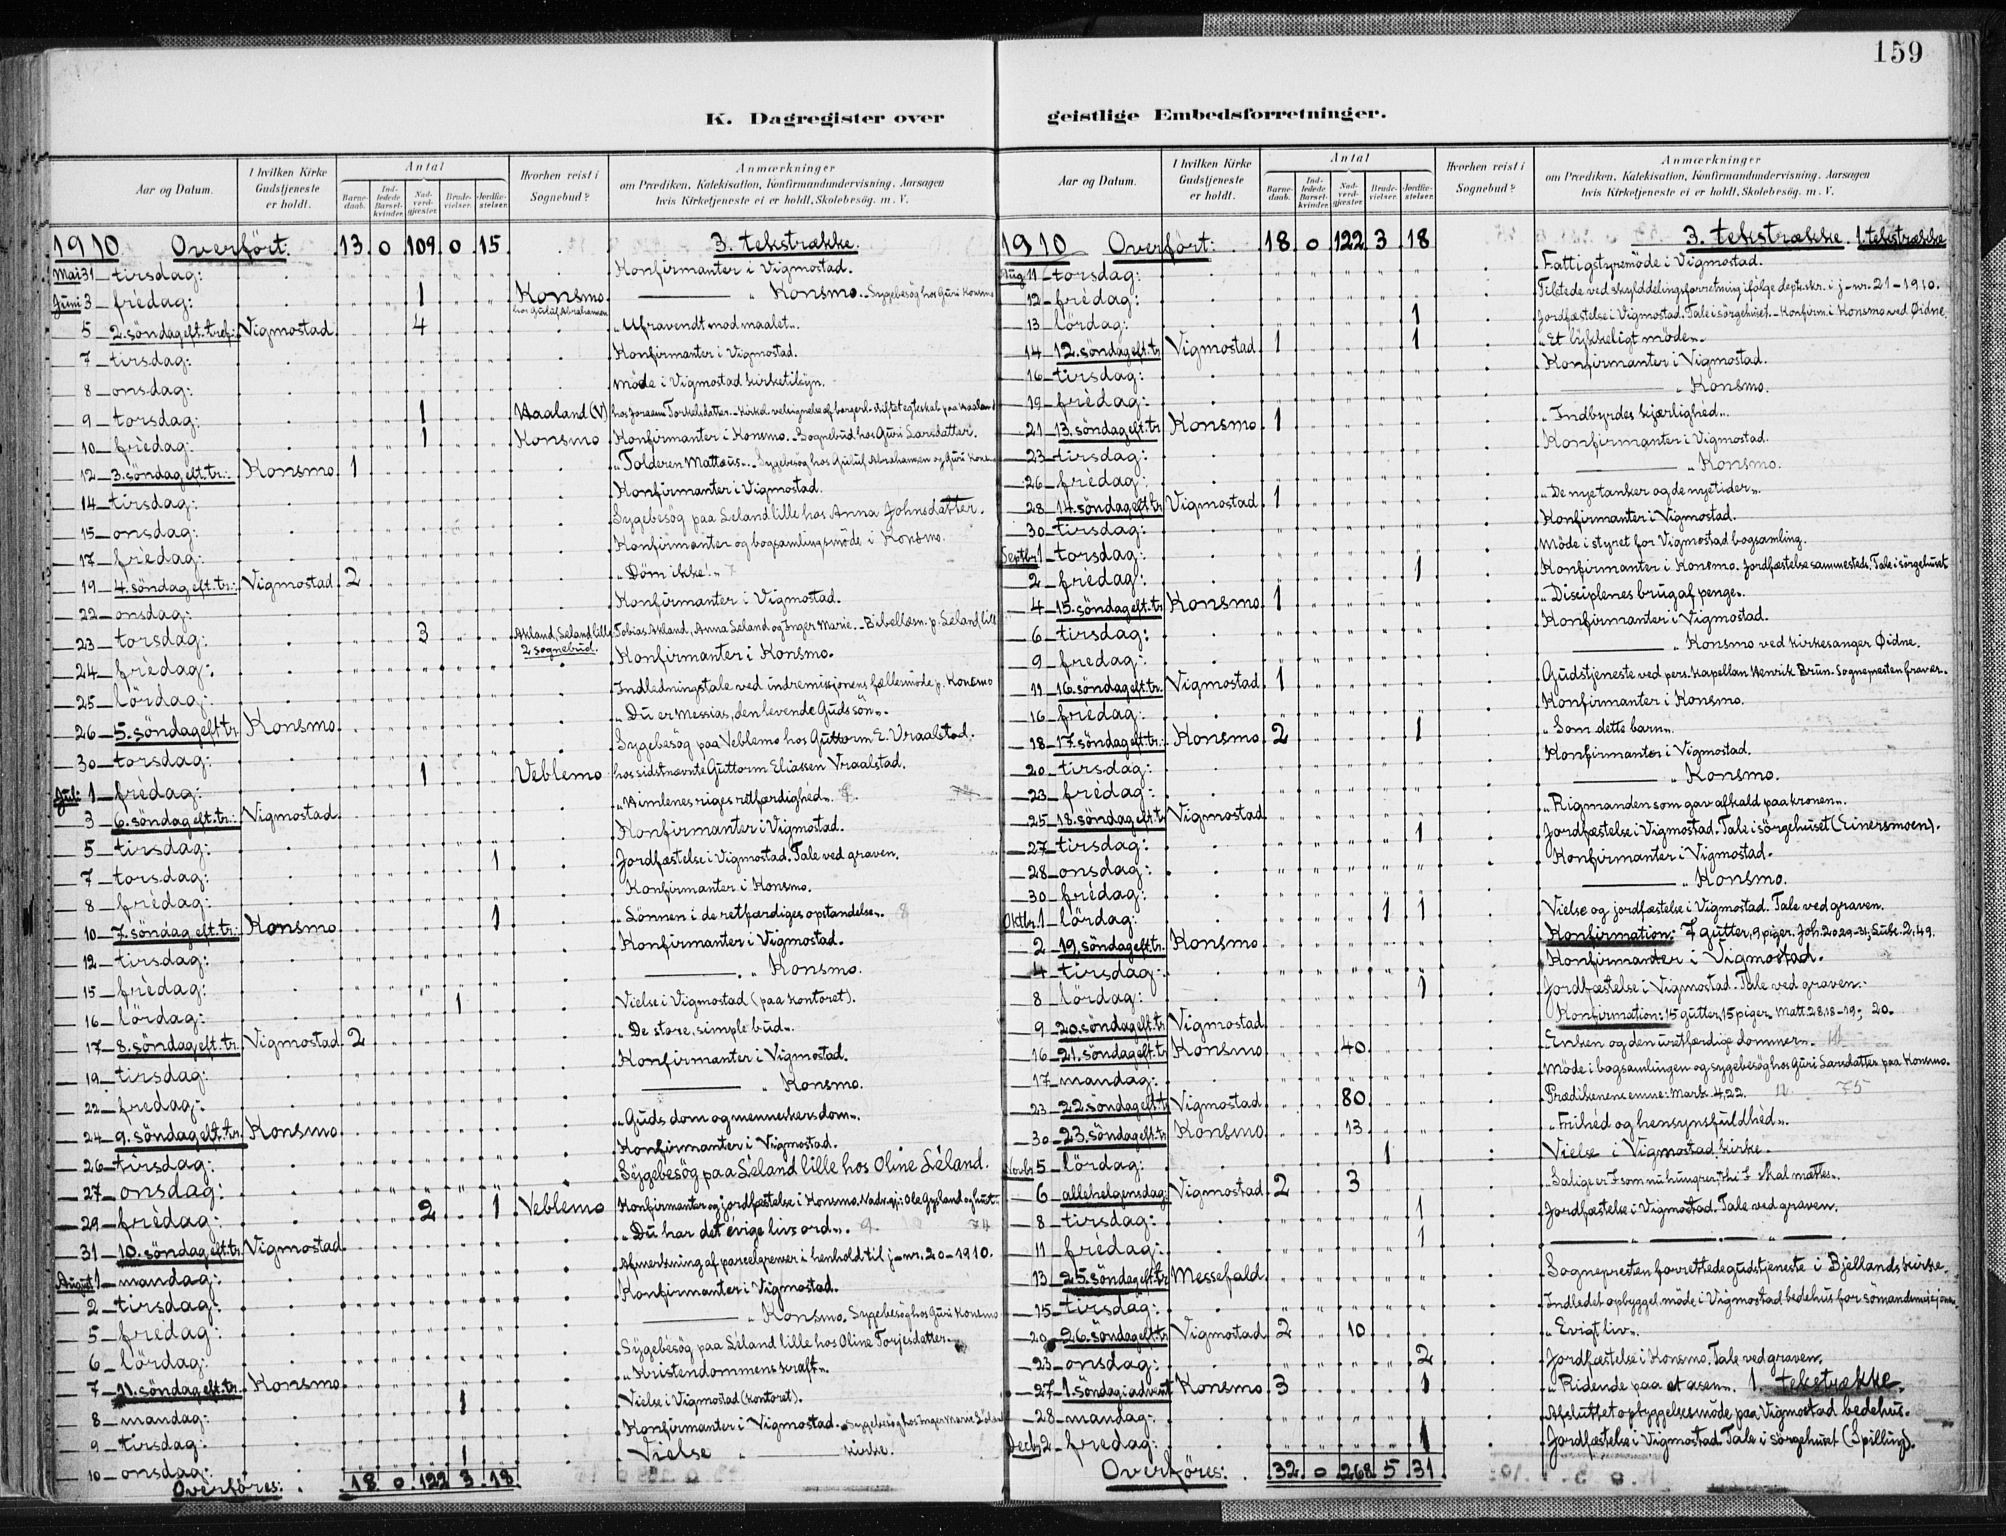 159
K. Dagregister over geistlige Embedsforretninger.
Aar og Datum. I hvilken Kirke Gudstjeneste er holdt. Antal Barnedaab. Indledede Barselkvinder. Nadverdgjæster. Brudevielser. Jordfæstelser. Hvorhen reist i Sognebud? Anmærkninger om Prædiken, Katekisation, Konfirmandundervisning, Aarsagen hvis Kirketjeneste ei er holdt, Skolebesøg. m. V.
1910 Overført. 13 0 109 0 15 3. tekstrække.
Mai 31 tirsdag: Konfirmanter i Vigmostad.
Juni 3 fredag: 1 Konsmo. " Konsmo. Sygebesög hos Guri Konsmo
hos Guluf Abrahamsen
5 2. söndag eft. tref.: Vigmostad 4 „Ufravendt mod maalet".
7 tirsdag: Konfirmanter i Vigmostad.
8 onsdag: Möde i Vigmostad kirketilsyn.
9 torsdag: 1 Haaland (V)
10 fredag: 1 Konsmo Konfirmanter i Konsmo. Sognebud hos Guri Larsdatter.
12 3. söndag eft. tr.: Konsmo 1 „Tolderen Mattæus". Sygebesög hos Guluf Abrahamsen og Guri Kons
14 tirsdag: Konfirmanter i Vigmostad.
15 onsdag: Sygebesög paa Leland lille hos Anna Johnsdatter.
17 fredag: Konfirmanter og bogsamlingsmöde i Konsmo.
19 4. söndag eft. tr.: Vigmostad 2 „Döm ikke!"
22 onsdag: Konfirmanter i Vigmostad.
23 torsdag: 3 Akland, Leland lille Tobias Akland, Anna Leland og Inger Marie. Bibellæsn. p. Leland lille
2 sognebud.
24 fredag: Konfirmanter i Konsmo.
25 lördag: Indledningstale ved indremissjonens fællesmöde p. Konsmo
26 5. söndag eft. tr. Konsmo „Du er Messias, den levende Guds sön".
30 torsdag: Sygebesög paa Veblemo hos Guttorm E. Vraalstad.
Juli 1 fredag: 1 Veblemo hos sidstnævnte Guttorm Eliassen Vraalstad.
3 6. söndag eft. tr.: Vigmostad „Himlenes riges retfærdighed".
5 tirsdag: Konfirmanter i Vigmostad.
7 torsdag: 1 Jordfæstelse i Vigmostad. Tale ved graven.
8 fredag: Konfirmanter i Konsmo.
10 7. söndag eft. tr.: Konsmo 1 „Lönnen i de retfærdiges opstandelse". 8
12 tirsdag: Konfirmanter i Vigmostad.
15 fredag: " Konsmo.
16 lördag: 1 Vielse i Vigmostad (paa kontoret).
17 8. söndag eft. tr. Vigmostad 2 „De store, simple bud".
19 tirsdag: Konfirmanter i Vigmostad.
22 fredag: " Konsmo.
24 9. söndag eft. tr. Konsmo „Guds dom og menneskers dom".
26 tirsdag: Konfirmanter i Vigmostad.
27 onsdag: Sygebesög paa Leland lille hos Oline Leland.
29 fredag: 2 1 Veblemo Konfirmanter og jordfæstelse i Konsmo. Nadv.gj.: Ole Gysland og hust.
31 10. söndag eft. tr. Vigmostad „Du har det evige livs ord". 9. 74
August 1 mandag: Afmerkning af parcelgrenser i henhold til j-nr. 20-1910.
2 tirsdag: Konfirmanter i Vigmostad.
5 fredag: " Konsmo. Sygebesög hos Guri Konsmo
6 lördag: Sygebesög paa Leland lille hos Oline Torjesdatter.
7 11. söndag eft. tr. Konsmo „Kristendommens kraft".
8 mandag: 1 Vielse i Vigmostad (kontoret).
9 tirsdag: Konfirmanter i Vigmostad. Sygebesög hos Inger Marie
10 onsdag: 1 Vielse " kirke.
Overføres: 18 0 122 3 18
Aar og Datum. I hvilken Kirke Gudstjeneste er holdt. Antal Barnedaab. Indledede Barselkvinder. Nadverdgjæster. Brudevielser. Jordfæstelser. Hvorhen reist i Sognebud? Anmærkninger om Prædiken, Katekisation, Konfirmandundervisning, Aarsagen hvis Kirketjeneste ei er holdt, Skolebesøg. m. V.
1910 Overført: 18 0 122 3 18 3. tekstrække. 1. tekstrække
Aug. 11 torsdag: Fattigstyremöde i Vigmostad.
12 fredag: Tilstede ved skylddelingsforretning ifölge dept.skr. i j-nr. 21-1910.
13 lördag: 1 Jordfæstelse i Vigmostad. Tale i sörgehuset. Konfirm. i Konsmo ved Øidne.
14 12. söndag eft. tr. Vigmostad 1 1 „Et lykkeligt möde".
16 tirsdag: Konfirmanter i Vigmostad.
19 fredag: " Konsmo.
21 13. söndag eft. tr. Konsmo 1 „Indbyrdes kjærlighed".
23 tirsdag: Konfirmanter i Vigmostad.
26 fredag: " Konsmo.
28 14. söndag eft. tr. Vigmostad 1 „De nye tanker og de nye tider".
30 tirsdag: Konfirmanter i Vigmostad.
Septbr. 1 torsdag: Möde i styret for Vigmostad bogsamling.
2 fredag: 1 Konfirmanter i Konsmo. Jordfæstelse sammesteds; Tale i sörgehuset
4 15. söndag eft. tr. Konsmo 1 „Disciplenes brug af penge".
6 tirsdag: Konfirmanter i Vigmostad.
9 fredag: " Konsmo ved kirkesanger Øidne.
11 16. söndag eft. tr. Vigmostad 1 Gudstjeneste ved pers. kapellan Henrik Brun. Sognepresten fravær.
16 fredag: Konfirmanter i Konsmo.
18 17. söndag eft. tr.: Konsmo 2 1 „Som dette barn".
20 tirsdag: Konfirmanter i Vigmostad.
23 fredag: " Konsmo.
25 18. söndag eft. tr. Vigmostad „Rigmanden som gav afkald paa kronen".
27 tirsdag: 1 Jordfæstelse i Vigmostad. Tale i sörgehuset (Einersmoen).
28 onsdag: Konfirmanter i Vigmostad.
30 fredag: " Konsmo.
Oktbr. 1 lördag: 1 1 Vielse og jordfæstelse i Vigmostad. Tale ved graven.
2 19. söndag eft. tr. Konsmo Konfirmation: 7 gutter, 9 piger. Joh. 20.29-31; Luk. 2,49.
4 tirsdag: Konfirmanter i Vigmostad.
8 lördag: 1 Jordfæstelse i Vigmostad. Tale ved graven.
9 20. söndag eft. tr Vigmostad Konfirmation: 15 gutter, 15 piger. Matt. 28.18-19. 20.
16 21. söndag eft. tr Konsmo 40 „Enken og den uretfærdige dommer".
17 mandag: Möde i bogsamlingen og sygebesög hos Guri Larsdatter paa Konsmo.
23 22. söndag eft. tr Vigmostad 80 Prædikenens emne: Mark. 4,22. 75
30 23. söndag eft. tr Konsmo 13 „Frihed og hensynsfuldhed".
Novbr 5 lördag: 1 Vielse i Vigmostad kirke.
6 allehelgensdag: Vigmostad 2 3 „Salige er I som nu hungrer, thi I skal mættes".
8 tirsdag: 1 Jordfæstelse i Vigmostad. Tale ved graven.
11 fredag: 1 " " "
13 25. söndag eft. tr Messefald Sognepresten forrettede gudstjeneste i Bjellands kirke.
15 tirsdag: Indledet opbyggel. möde i Vigmostad bedehus for sömandsmissjonen
20 26. söndag eft. tr Vigmostad 2 10 „Evigt liv".
23 onsdag: 2 Jordfæstelse i Konsmo. Tale ved graven.
27 1. söndag i advent Konsmo 3 1 „Ridende paa et asen". 1. tekstrække.
28 mandag: Afsluttet opbyggelsesmöde paa Vigmostad bedehus.
Decbr 2 fredag: 1 Jordfæstelse i Vigmostad. Tale i sörgehuset (Spilling).
Overføres: 32 0 268 5 31